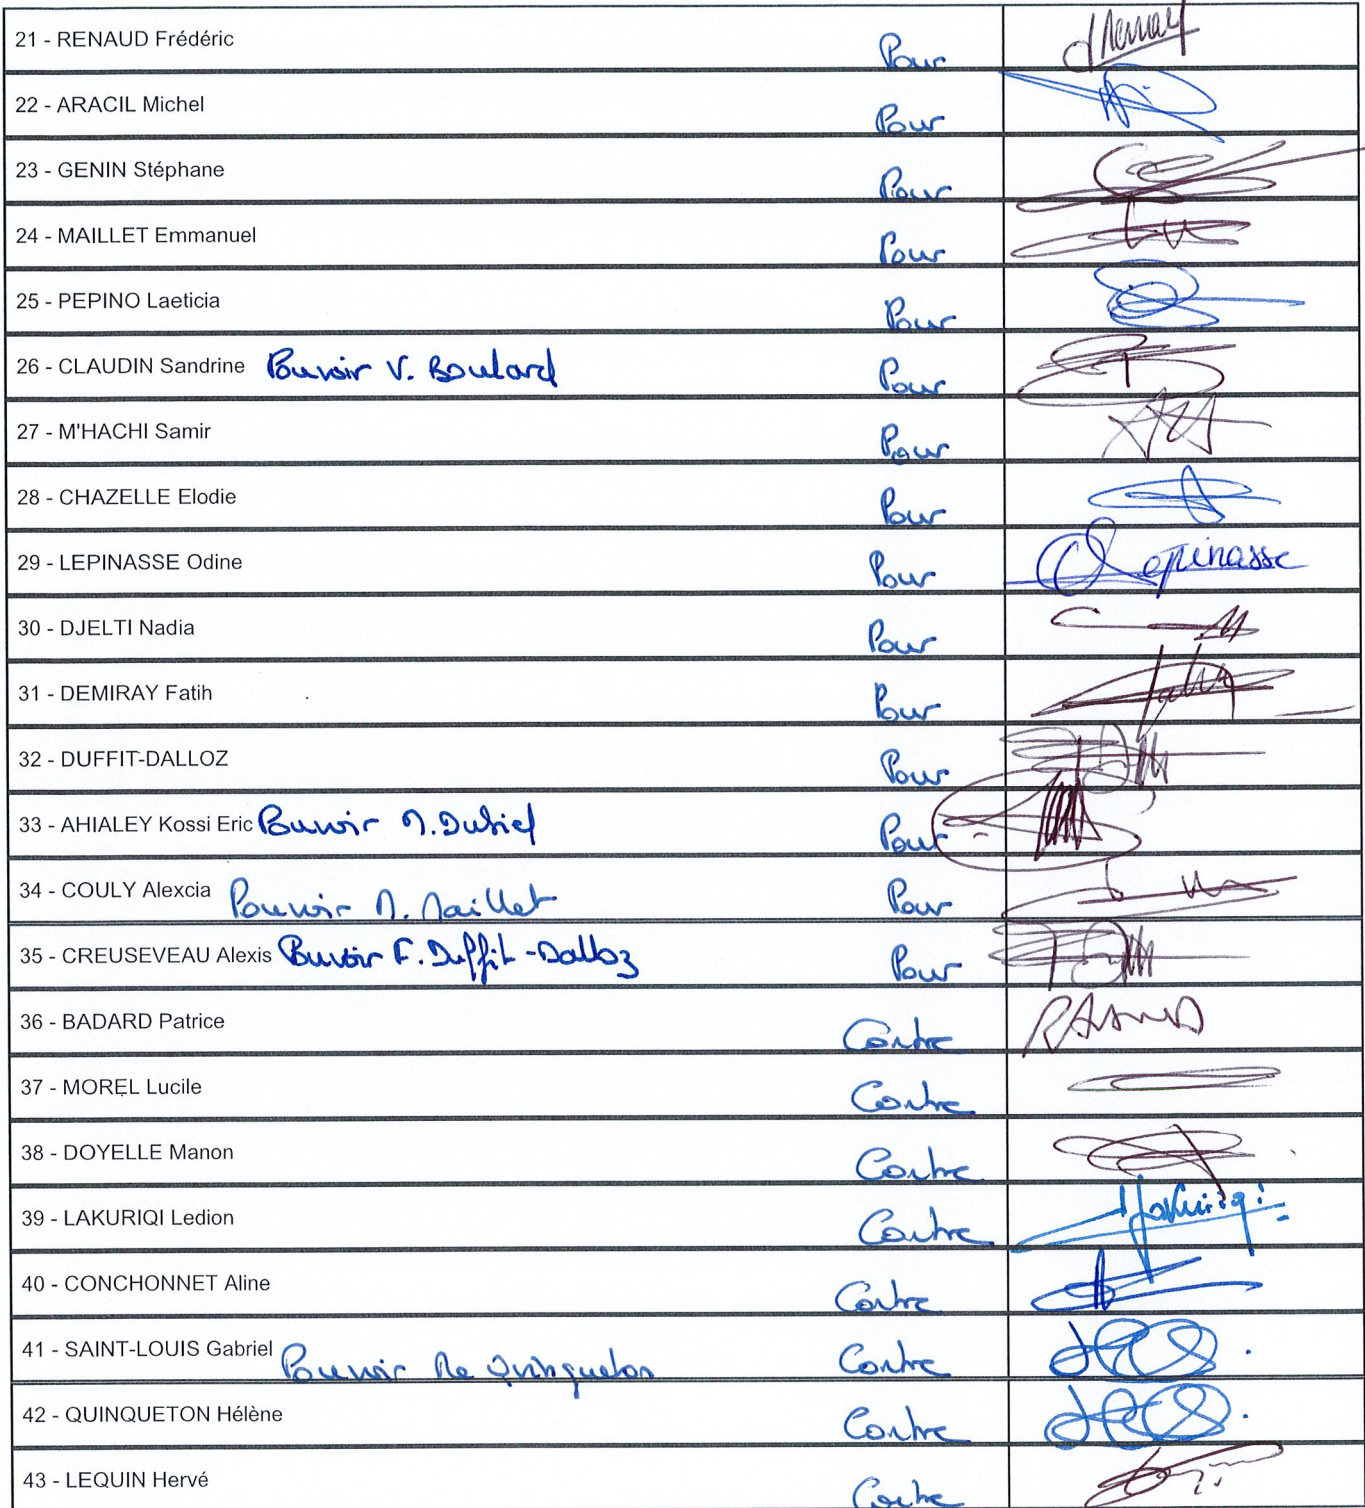 21 - RENAUD Frédéric Pour
22 - ARACIL Michel Pour
23 - GENIN Stéphane Pour
24 - MAILLET Emmanuel Pour
25 - PEPINO Laeticia Pour
26 - CLAUDIN Sandrine Pouvoir V. Boulard Pour
27 - M'HACHI Samir Pour
28 - CHAZELLE Elodie Pour
29 - LEPINASSE Odine Pour Lepinasse
30 - DJELTI Nadia Pour
31 - DEMIRAY Fatih Pour
32 - DUFFIT-DALLOZ Pour
33 - AHIALEY Kossi Eric Pouvoir M. Dubief Pour
34 - COULY Alexcia Pouvoir M. Maillet Pour
35 - CREUSEVEAU Alexis Pouvoir F. Duffit-Dalloz Pour
36 - BADARD Patrice Contre
37 - MOREL Lucile Contre
38 - DOYELLE Manon Contre
39 - LAKURIQI Ledion Contre
40 - CONCHONNET Aline Contre
41 - SAINT-LOUIS Gabriel Pouvoir Me Quinqueton Contre
42 - QUINQUETON Hélène Contre
43 - LEQUIN Hervé Contre